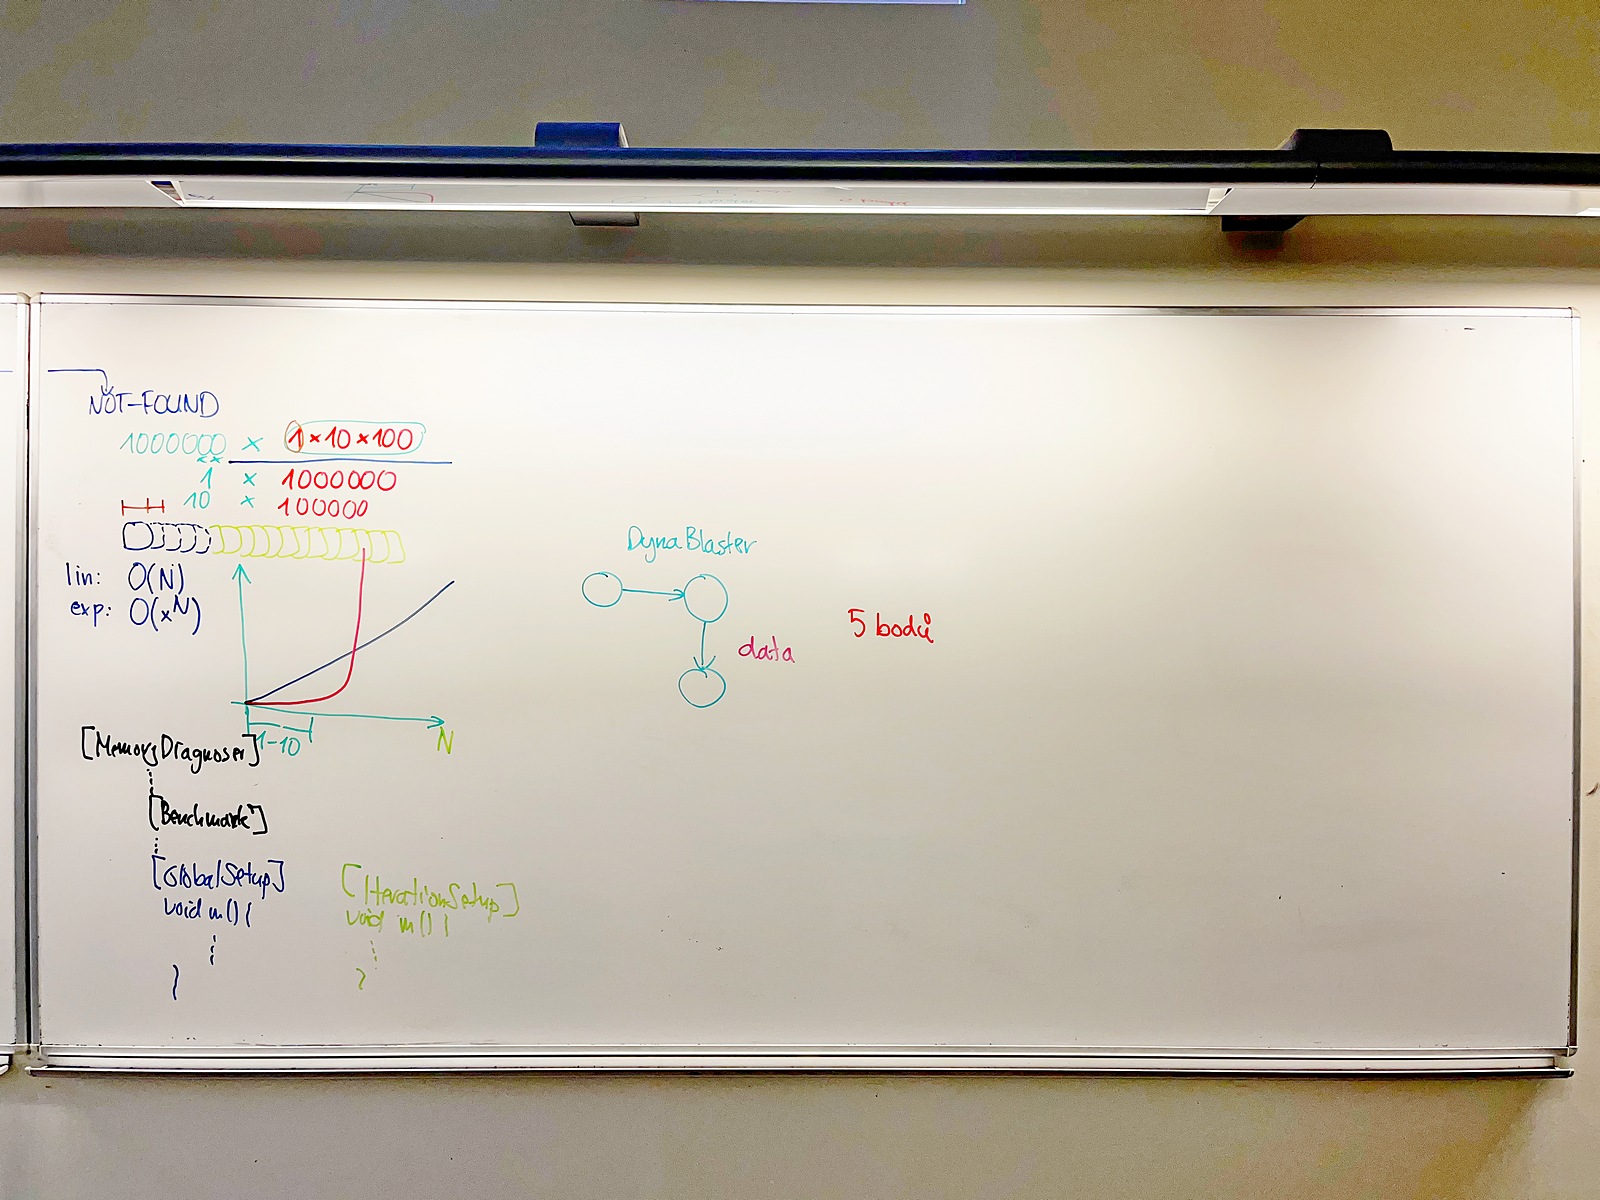 NOT-FOUND
1000000 × 1×10×100
1 × 1000000
10 × 100000
lin: O(N)
exp: O(x^N)
1-10
N
[MemoryDiagnoser]
[Benchmark]
[GlobalSetup]
void m() {
}
[IterationSetup]
void m() {
}
DynaBlaster
data
5 bodů